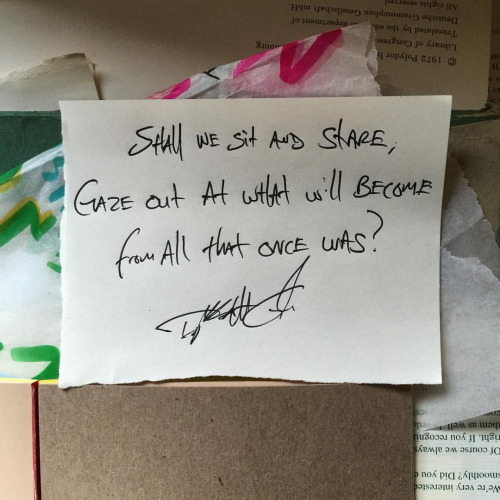 © 1972 Polydor
Library of Congress
Translated by the department of
Deutsche Grammophon Gesellschaft mbH.
All rights reserved
Shall we sit and share,
Gaze out at what will become
from all that once was?
We're very interested
smoothly? Did you
Of course we always
right. If you
them as well